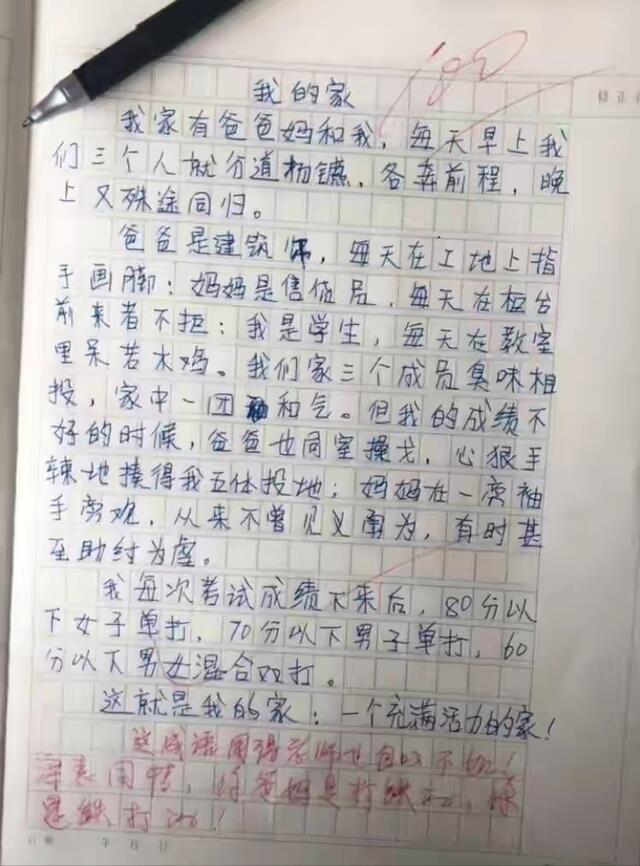 100
我的家
修正
我家有爸爸妈和我，每天早上我
们三个人就分道杨镳，各奔前程，晚
上又殊途同归。
爸爸是建筑师，每天在工地上指
手画脚；妈妈是售货员，每天在柜台
前来者不拒；我是学生，每天在教室
里呆若木鸡。我们家三个成员臭味相
投，家中一团和气。但我的成绩不
好的时候，爸爸也同室操戈，心狠手
辣地揍得我五体投地；妈妈在一旁袖
手旁观，从来不曾见义勇为，有时甚
至助纣为虐。
我每次考试成绩下来后，80分以
下女子单打，70分以下男子单打，60
分以下男女混合双打。
这就是我的家：一个充满活力的家！
这成语用得老师也自叹不如！
深表同情，你爸妈是打铁的，你
是铁打的！
年 月 日